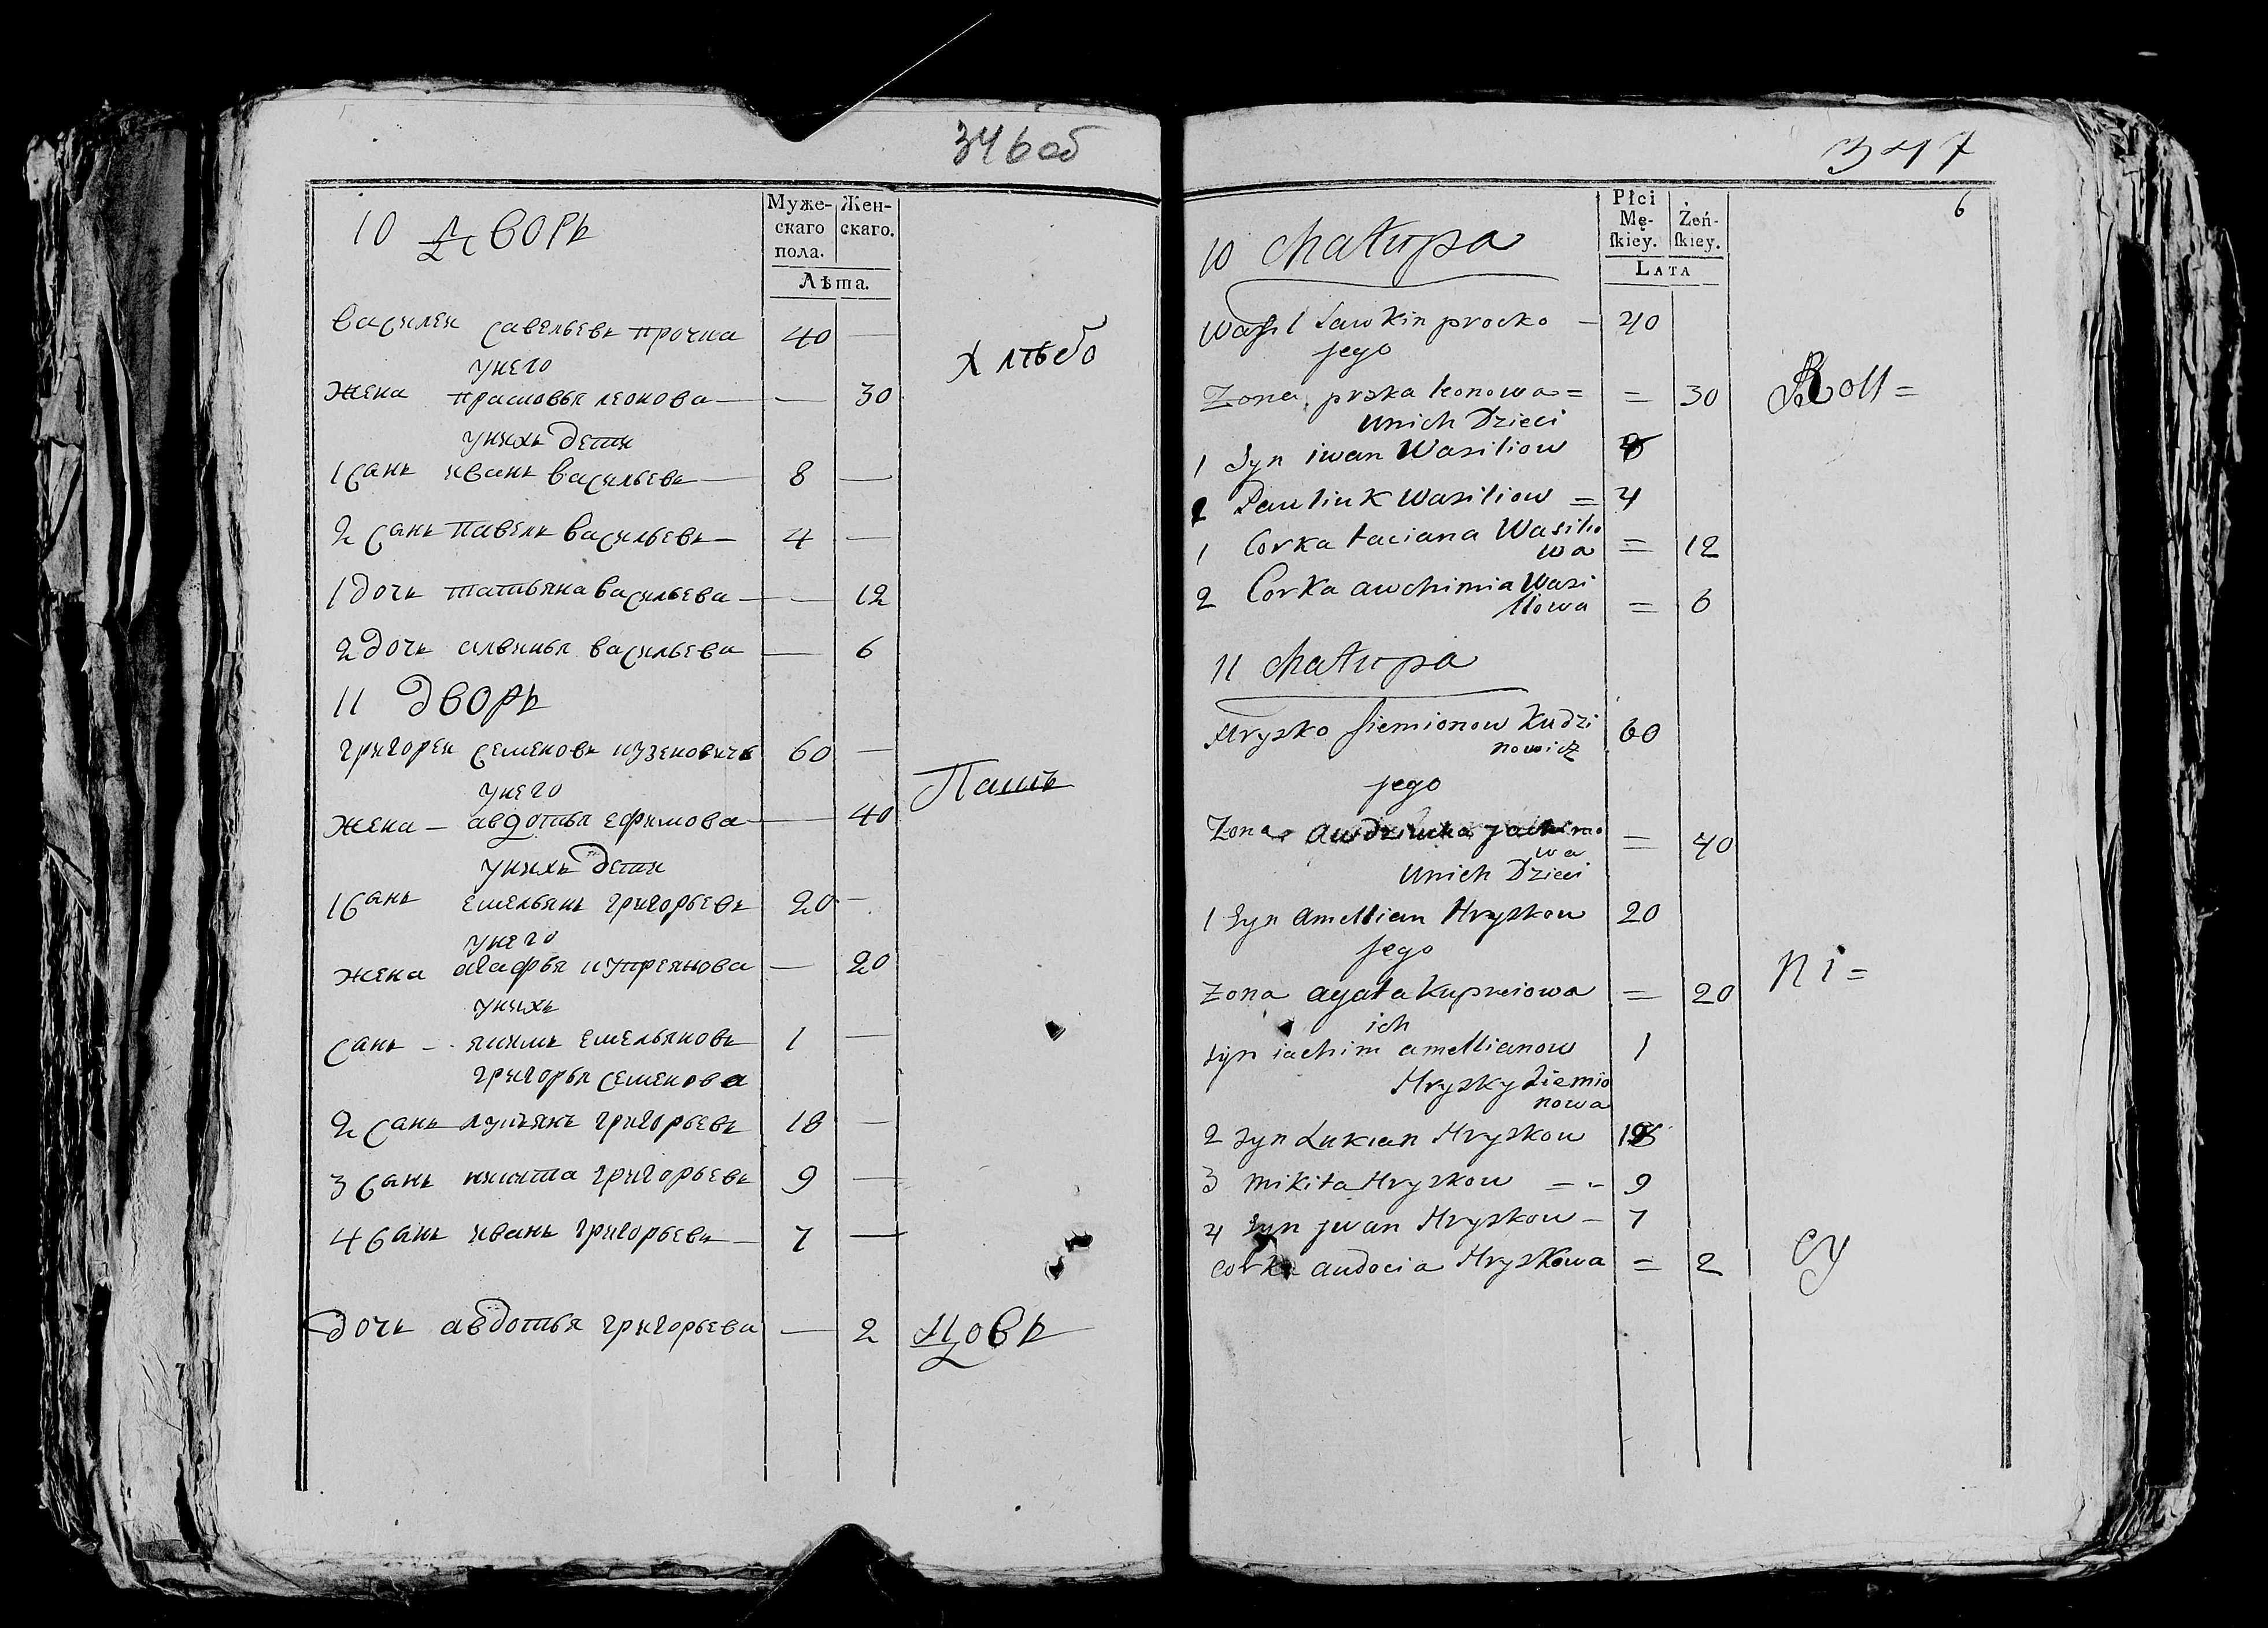 346об
10 Дворъ
Муже-
скаго
пола.
Жен-
скаго.
Лѣта.
Василеи Савельевъ Прочка 40 —
унего
Жена Прасковья Леонова — 30
унихъ Дети
1 Санъ Иванъ Васильевъ 8 —
2 Санъ Павелъ Васильевъ 4 —
1 Дочь Татьяна Васильева — 12
2 Дочь Васильева — 6
Хлѣбо
11 Дворъ
Григореи Семеновъ Кузеновичъ 60 —
унего
Жена — Авдотья Ефимова — 40
унихъ Дети
1 Санъ Емельянъ Григорьевъ 20 —
унего
Жена Агафья Купреянова — 20
унихъ
Санъ — Якимъ Емельяновъ 1 —
Григорья Семенова
2 Санъ Лукьянъ Григорьевъ 18 —
3 Санъ Никита Григорьевъ 9 —
4 Санъ Иванъ Григорьевъ 7 —
Дочь Авдотья Григорьева — 2
Паш
цовъ
347
6
10 Chałupa
Płci
Mę-
ſkiey.
Żeń-
ſkiey.
LATA
Wasil Sawkin procko — 40
jego
Zona prska Leonowa = = 30
Unich Dzieci
1 Syn iwan Wasiliow 8
2 Pauliuk Wasiliow = 4
1 Corka taciana Wasilio
wa = 12
2 Corka awchimia Wasi
liowa = 6
Roll =
11 Chałupa
Hrysko siemionow Kudzi
nowicz 60
jego
Zona
wa = 40
Unich Dzieci
1 Syn amellian Hryskow 20
jego
Zona agata Kupreiowa = 20
ich
Syn iachim amellianow 1
Hrysky Siemio
nowa
2 Syn Lukian Hryskow 18
3 Mikita Hryskow = - 9
4 Syn jwan Hryskow - 7
Corka audocia Hryskowa = 2
ni =
cy